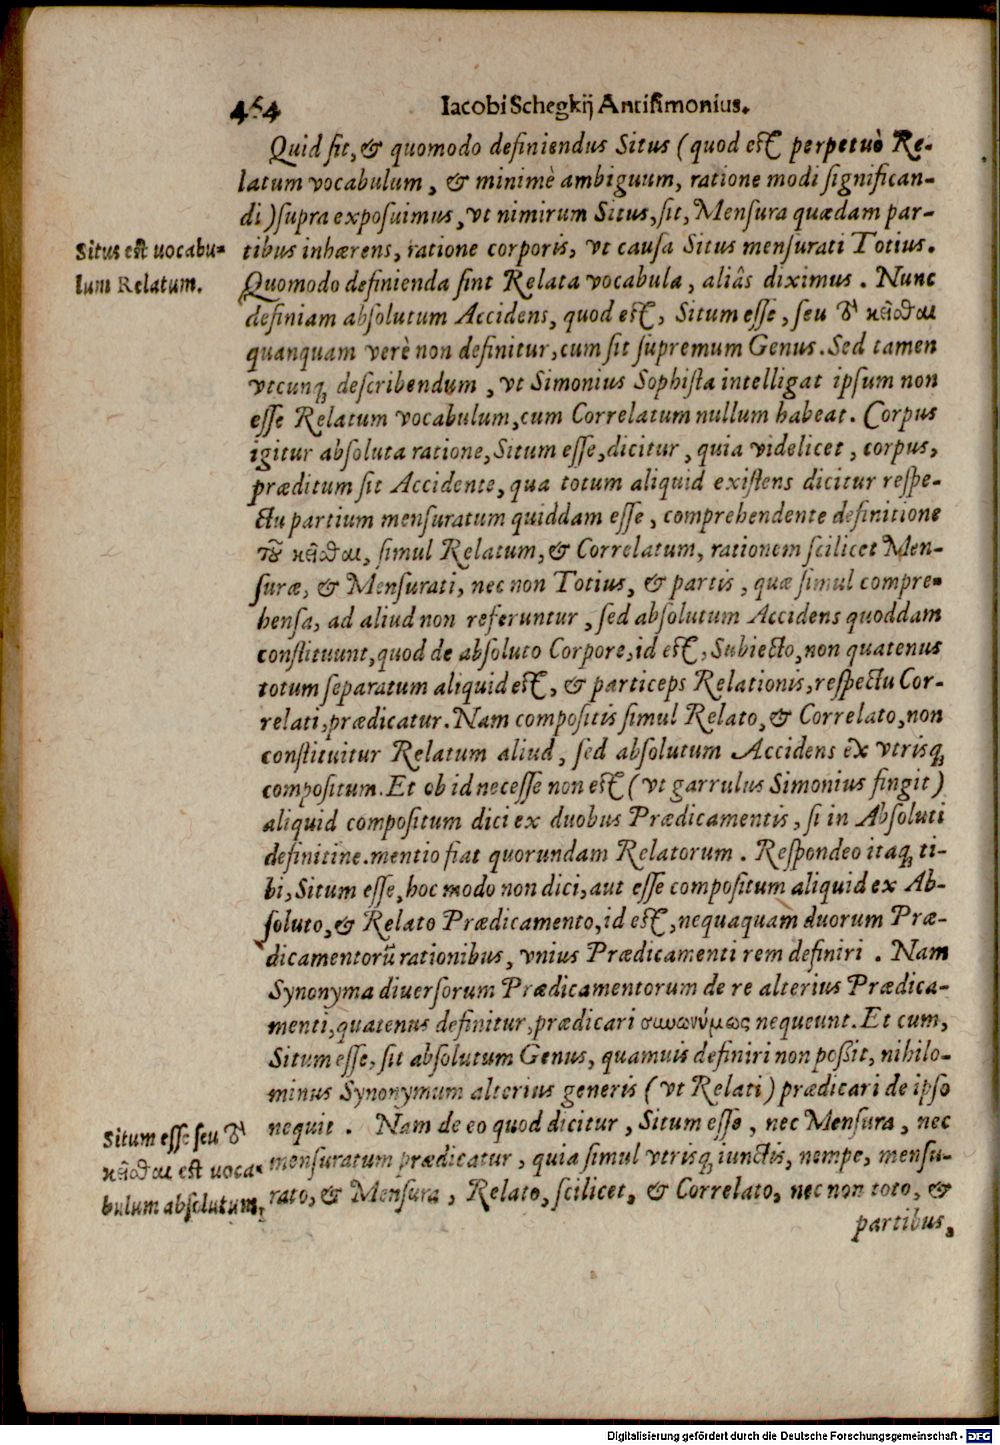 454 Iacobi Schegkij Antisimonius.
Quid sit, & quomodo definiendus Situs (quod est perpetuò Re-
latum vocabulum, & minimè ambiguum, ratione modi significan-
di) supra exposuimus, vt nimirum Situs, sit, Mensura quædam par-
Situs est uocabu-
lum Relatum.
tibus inhærens, ratione corporis, vt causa Situs mensurati Totius.
Quomodo definienda sint Relata vocabula, aliâs diximus. Nunc
definiam absolutum Accidens, quod est, Situm esse, seu τὸ κεῖσθαι
quanquam verè non definitur, cum sit supremum Genus. Sed tamen
vtcunq; describendum, vt Simonius Sophista intelligat ipsum non
esse Relatum vocabulum, cum Correlatum nullum habeat. Corpus
igitur absoluta ratione, Situm esse, dicitur, quia videlicet, corpus,
præditum sit Accidente, qua totum aliquid existens dicitur respe-
ctu partium mensuratum quiddam esse, comprehendente definitione
τοῦ κεῖσθαι, simul Relatum, & Correlatum, rationem scilicet Men-
suræ, & Mensurati, nec non Totius, & partis, quæ simul compre-
hensa, ad aliud non referuntur, sed absolutum Accidens quoddam
constituunt, quod de absoluto Corpore, id est, Subiecto, non quatenus
totum separatum aliquid est, & particeps Relationis, respectu Cor-
relati, prædicatur. Nam compositis simul Relato, & Correlato, non
constituitur Relatum aliud, sed absolutum Accidens ex vtrisq;
compositum. Et ob id necesse non est (vt garrulus Simonius fingit)
aliquid compositum dici ex duobus Prædicamentis, si in Absoluti
definitine. mentio fiat quorundam Relatorum. Respondeo itaq; ti-
bi, Situm esse, hoc modo non dici, aut esse compositum aliquid ex Ab-
soluto, & Relato Prædicamento, id est, nequaquam duorum Præ-
dicamentorũ rationibus, vnius Prædicamenti rem definiri. Nam
Synonyma diuersorum Prædicamentorum de re alterius Prædica-
menti, quatenus definitur, prædicari συνωνύμως nequeunt. Et cum,
Situm esse, sit absolutum Genus, quamuis definiri non poßit, nihilo-
minus Synonymum alterius generis (vt Relati) prædicari de ipso
nequit. Nam de eo quod dicitur, Situm esse, nec Mensura, nec
Situm esse seu τὸ
κεῖσθαι est uoca-
bulum absolutum,
mensuratum prædicatur, quia simul vtrisq; iunctis, nempe, mensu-
rato, & Mensura, Relato, scilicet, & Correlato, nec non toto, &
partibus,
Digitalisierung gefördert durch die Deutsche Forschungsgemeinschaft - DFG